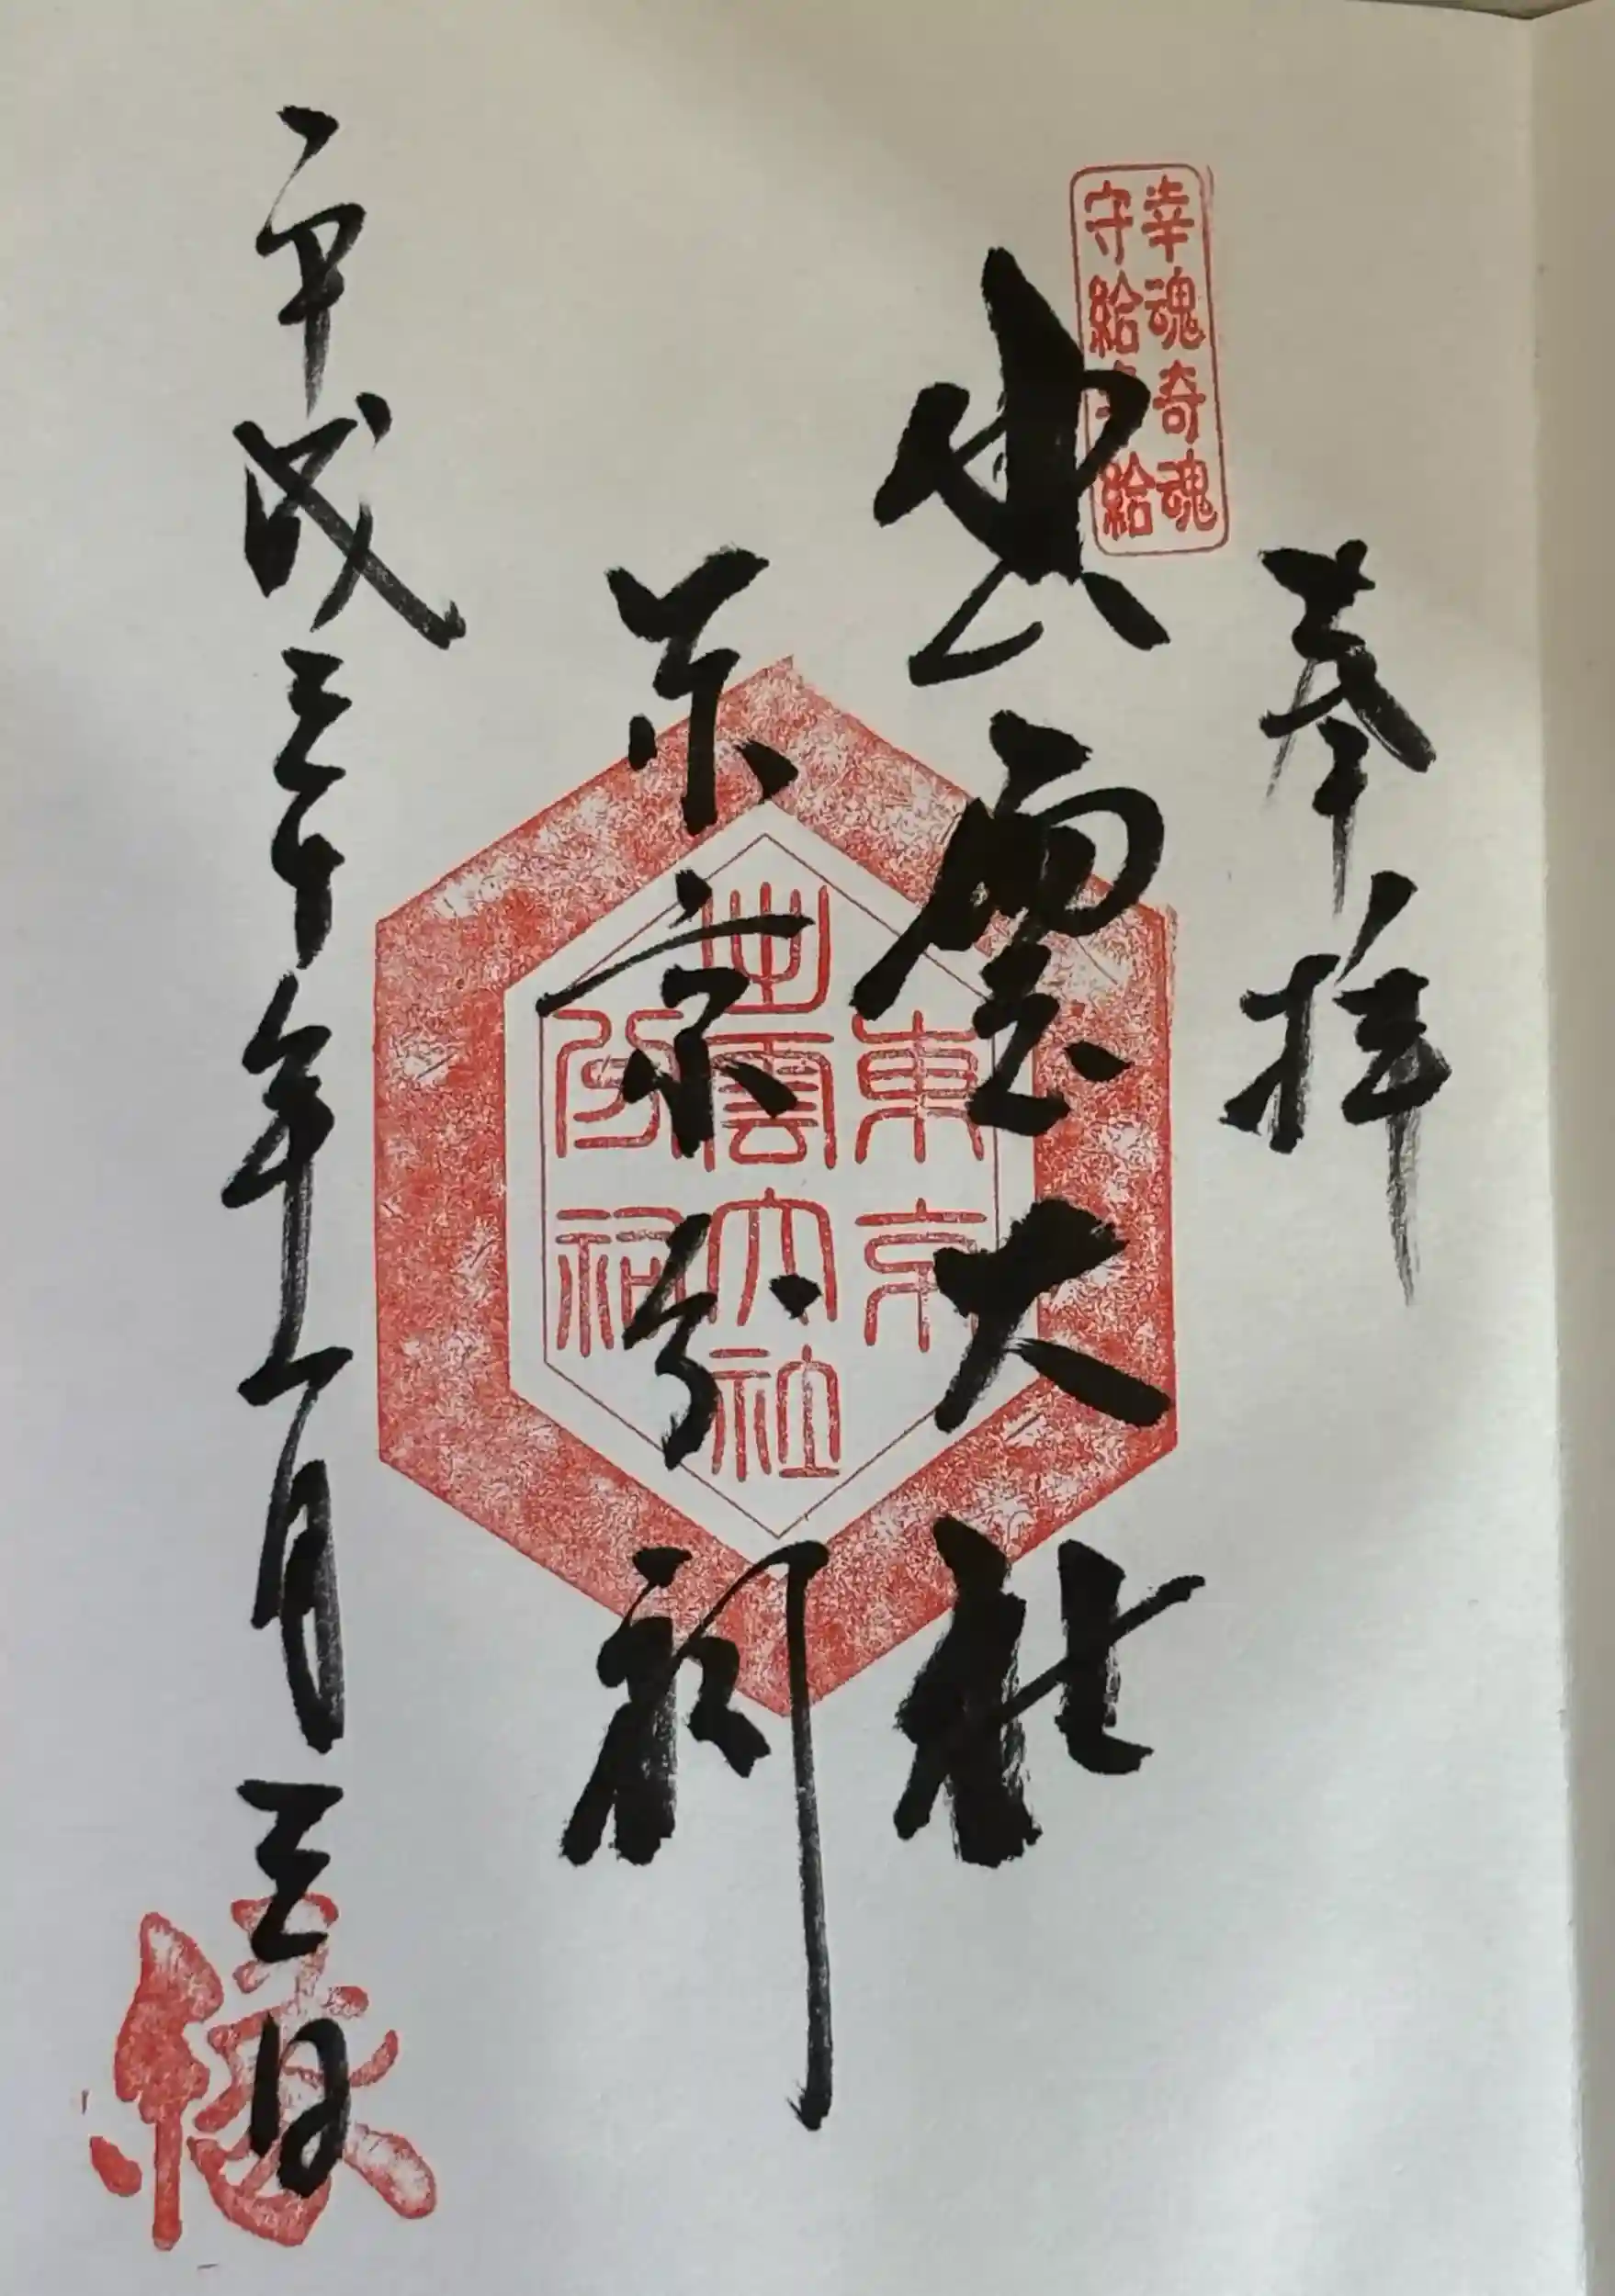 奉拝
幸魂奇魂
守給幸給
出雲大社
東京分祠
東京
出雲大社
分祠
平成三十年一月三日
縁